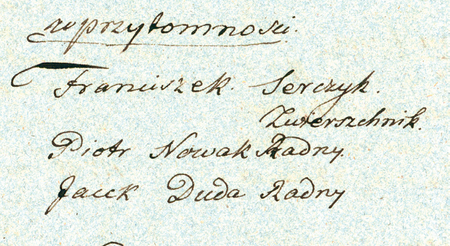 w przytomności.
Franciszek. Serczyk.
Zwierszchnik.
Piotr Nowak Radny.
Jacek Duda Radny